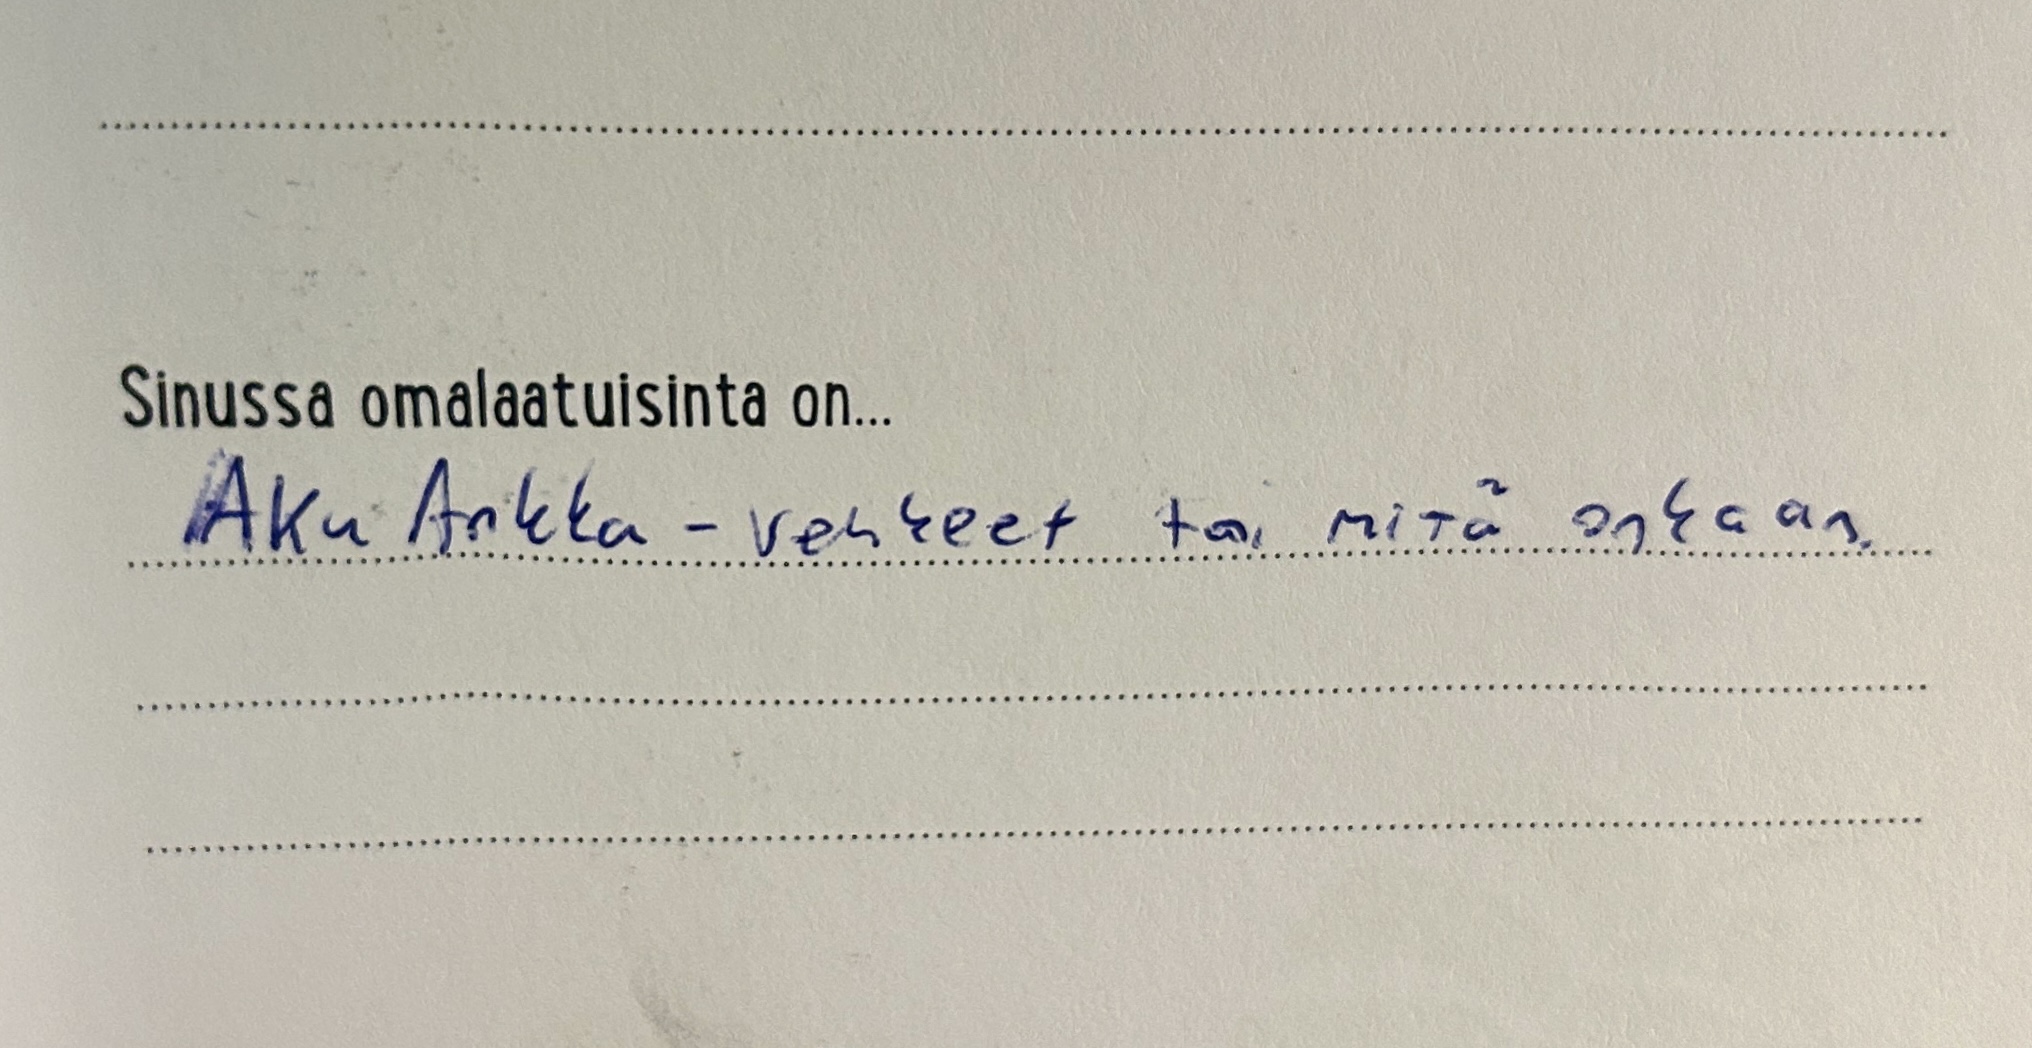 Sinussa omalaatuisinta on...
Aku Ankka - vehkeet tai mitä onkaan.